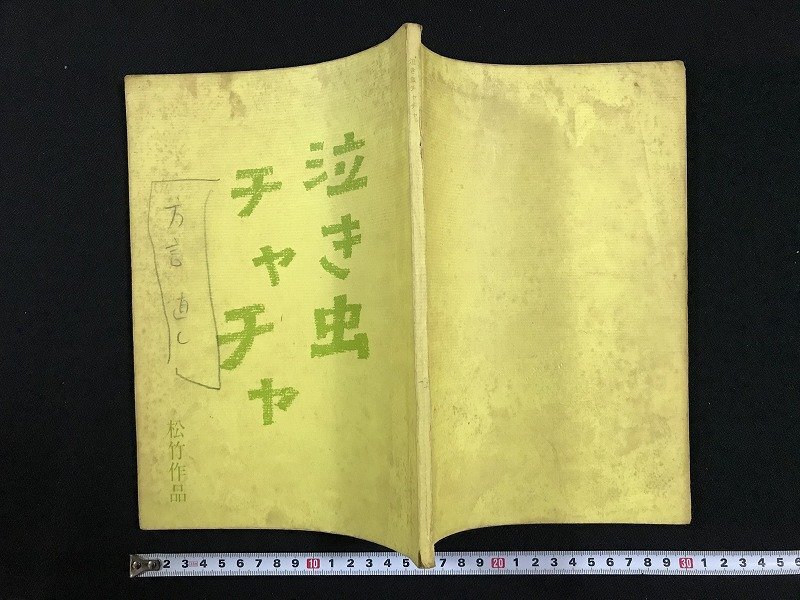 泣き虫
チャチャ
方言直し
松竹作品
2 3 4 5 6 7 8 9 10 1 2 3 4 5 6 7 8 9 20 1 2 3 4 5 6 7 8 9 30 1 2 3 4 5 6